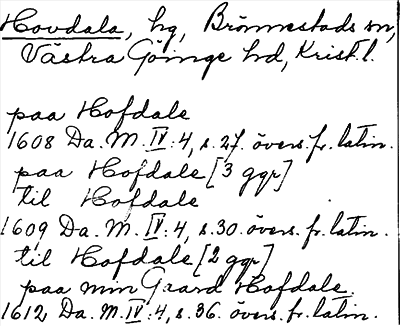 Hovdala, hg, Brönnestads sn,
Västra Göinge hd, Krist. l.
paa Hofdale
1608 Da. M. IV:4, s. 27. övers. fr. latin.
paa Hofdale [3 ggr]
til Hofdale
1609 Da. M. IV:4, s. 30. övers. fr. latin.
til Hofdale [2 ggr]
paa min Graard Hofdale.
1612 Da. M. IV:4, s. 36. övers. fr. latin.